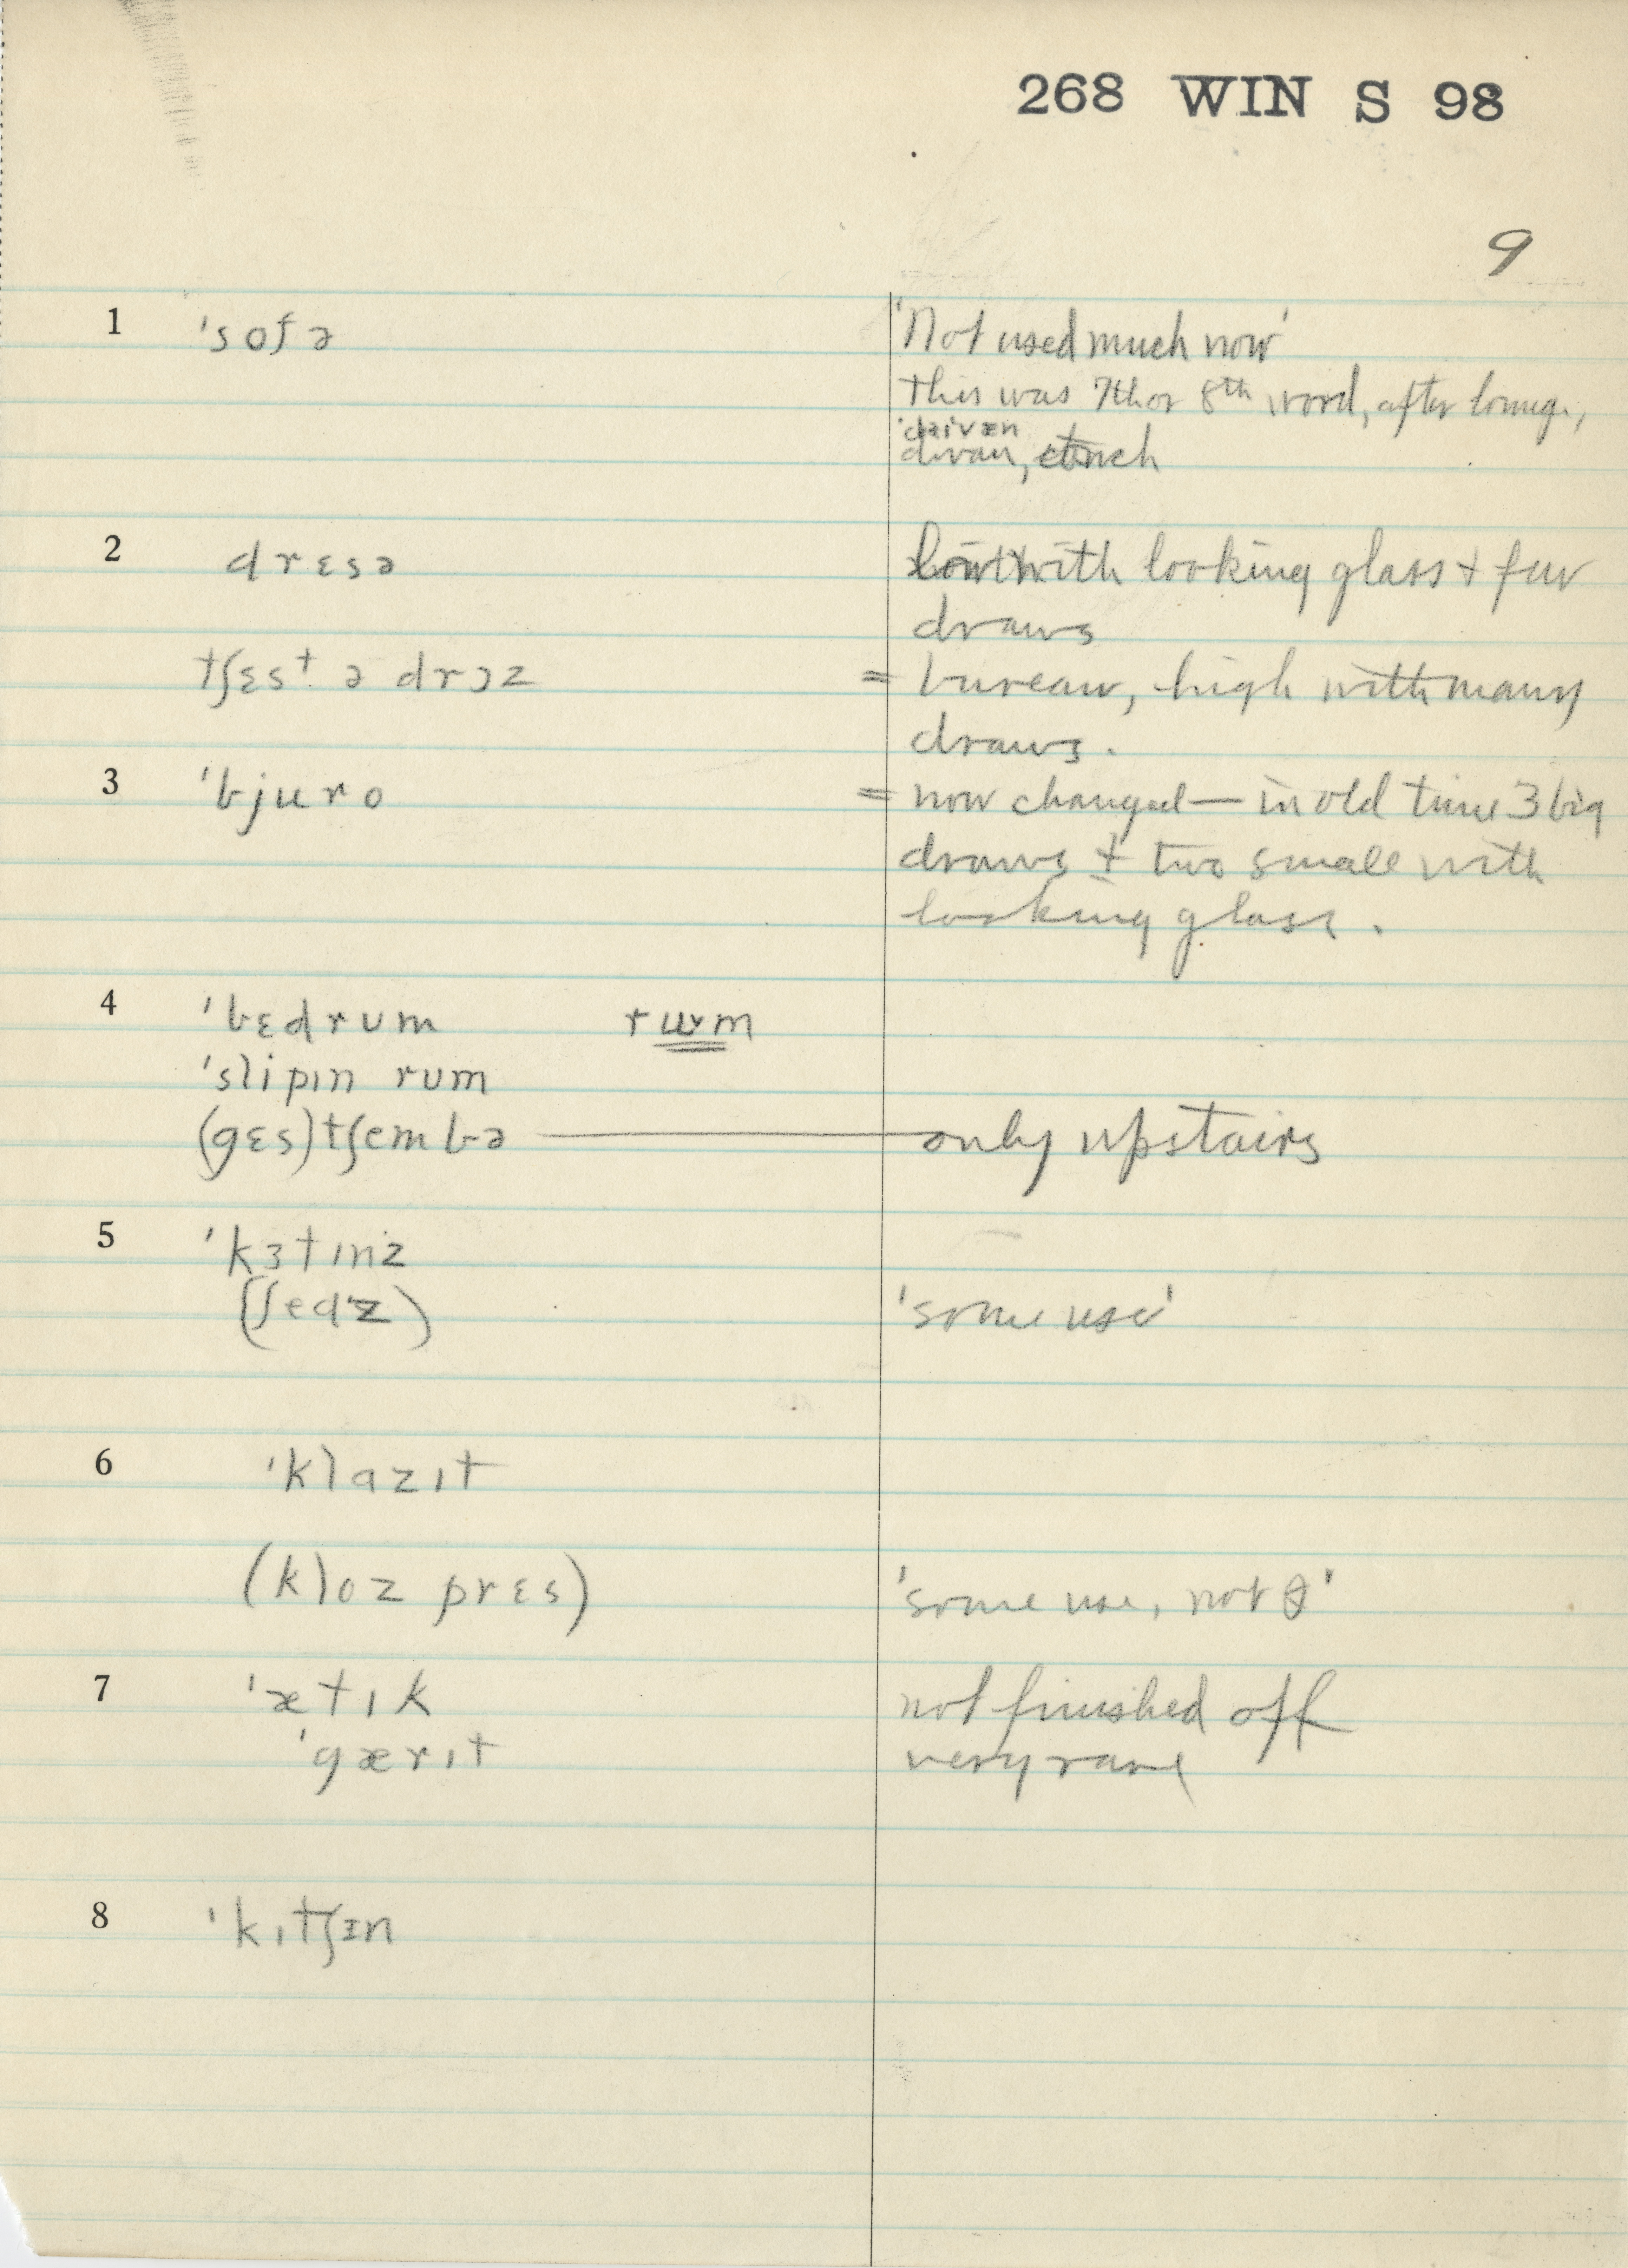 268 WIN S 98
9
1 'sofə 'Not used much now'
This was 7th or 8th word, after loung.,
'daivæn
divan, couch
2 drɛsə with looking glass + few
draws
tʃɛst ə drɔz = bureau, high with many
draws.
3 'bjuro = now changed — in old time 3 big
draws + two small with
looking glass.
4 'bɛdrʊm rʊm
'slipɪn rʊm
(gɛs)tʃembə — only upstairs
5 'kɜtɪnz
(ʃedz) 'some use'
6 'klazɪt
(kloz prɛs) 'some use, not I'
7 'ætɪk not finished off
'gærɪt very rare
8 'kɪtʃɪn